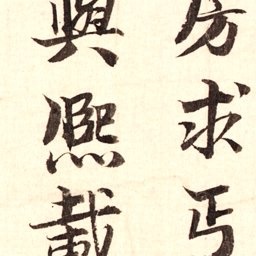 房求丐
與熙載